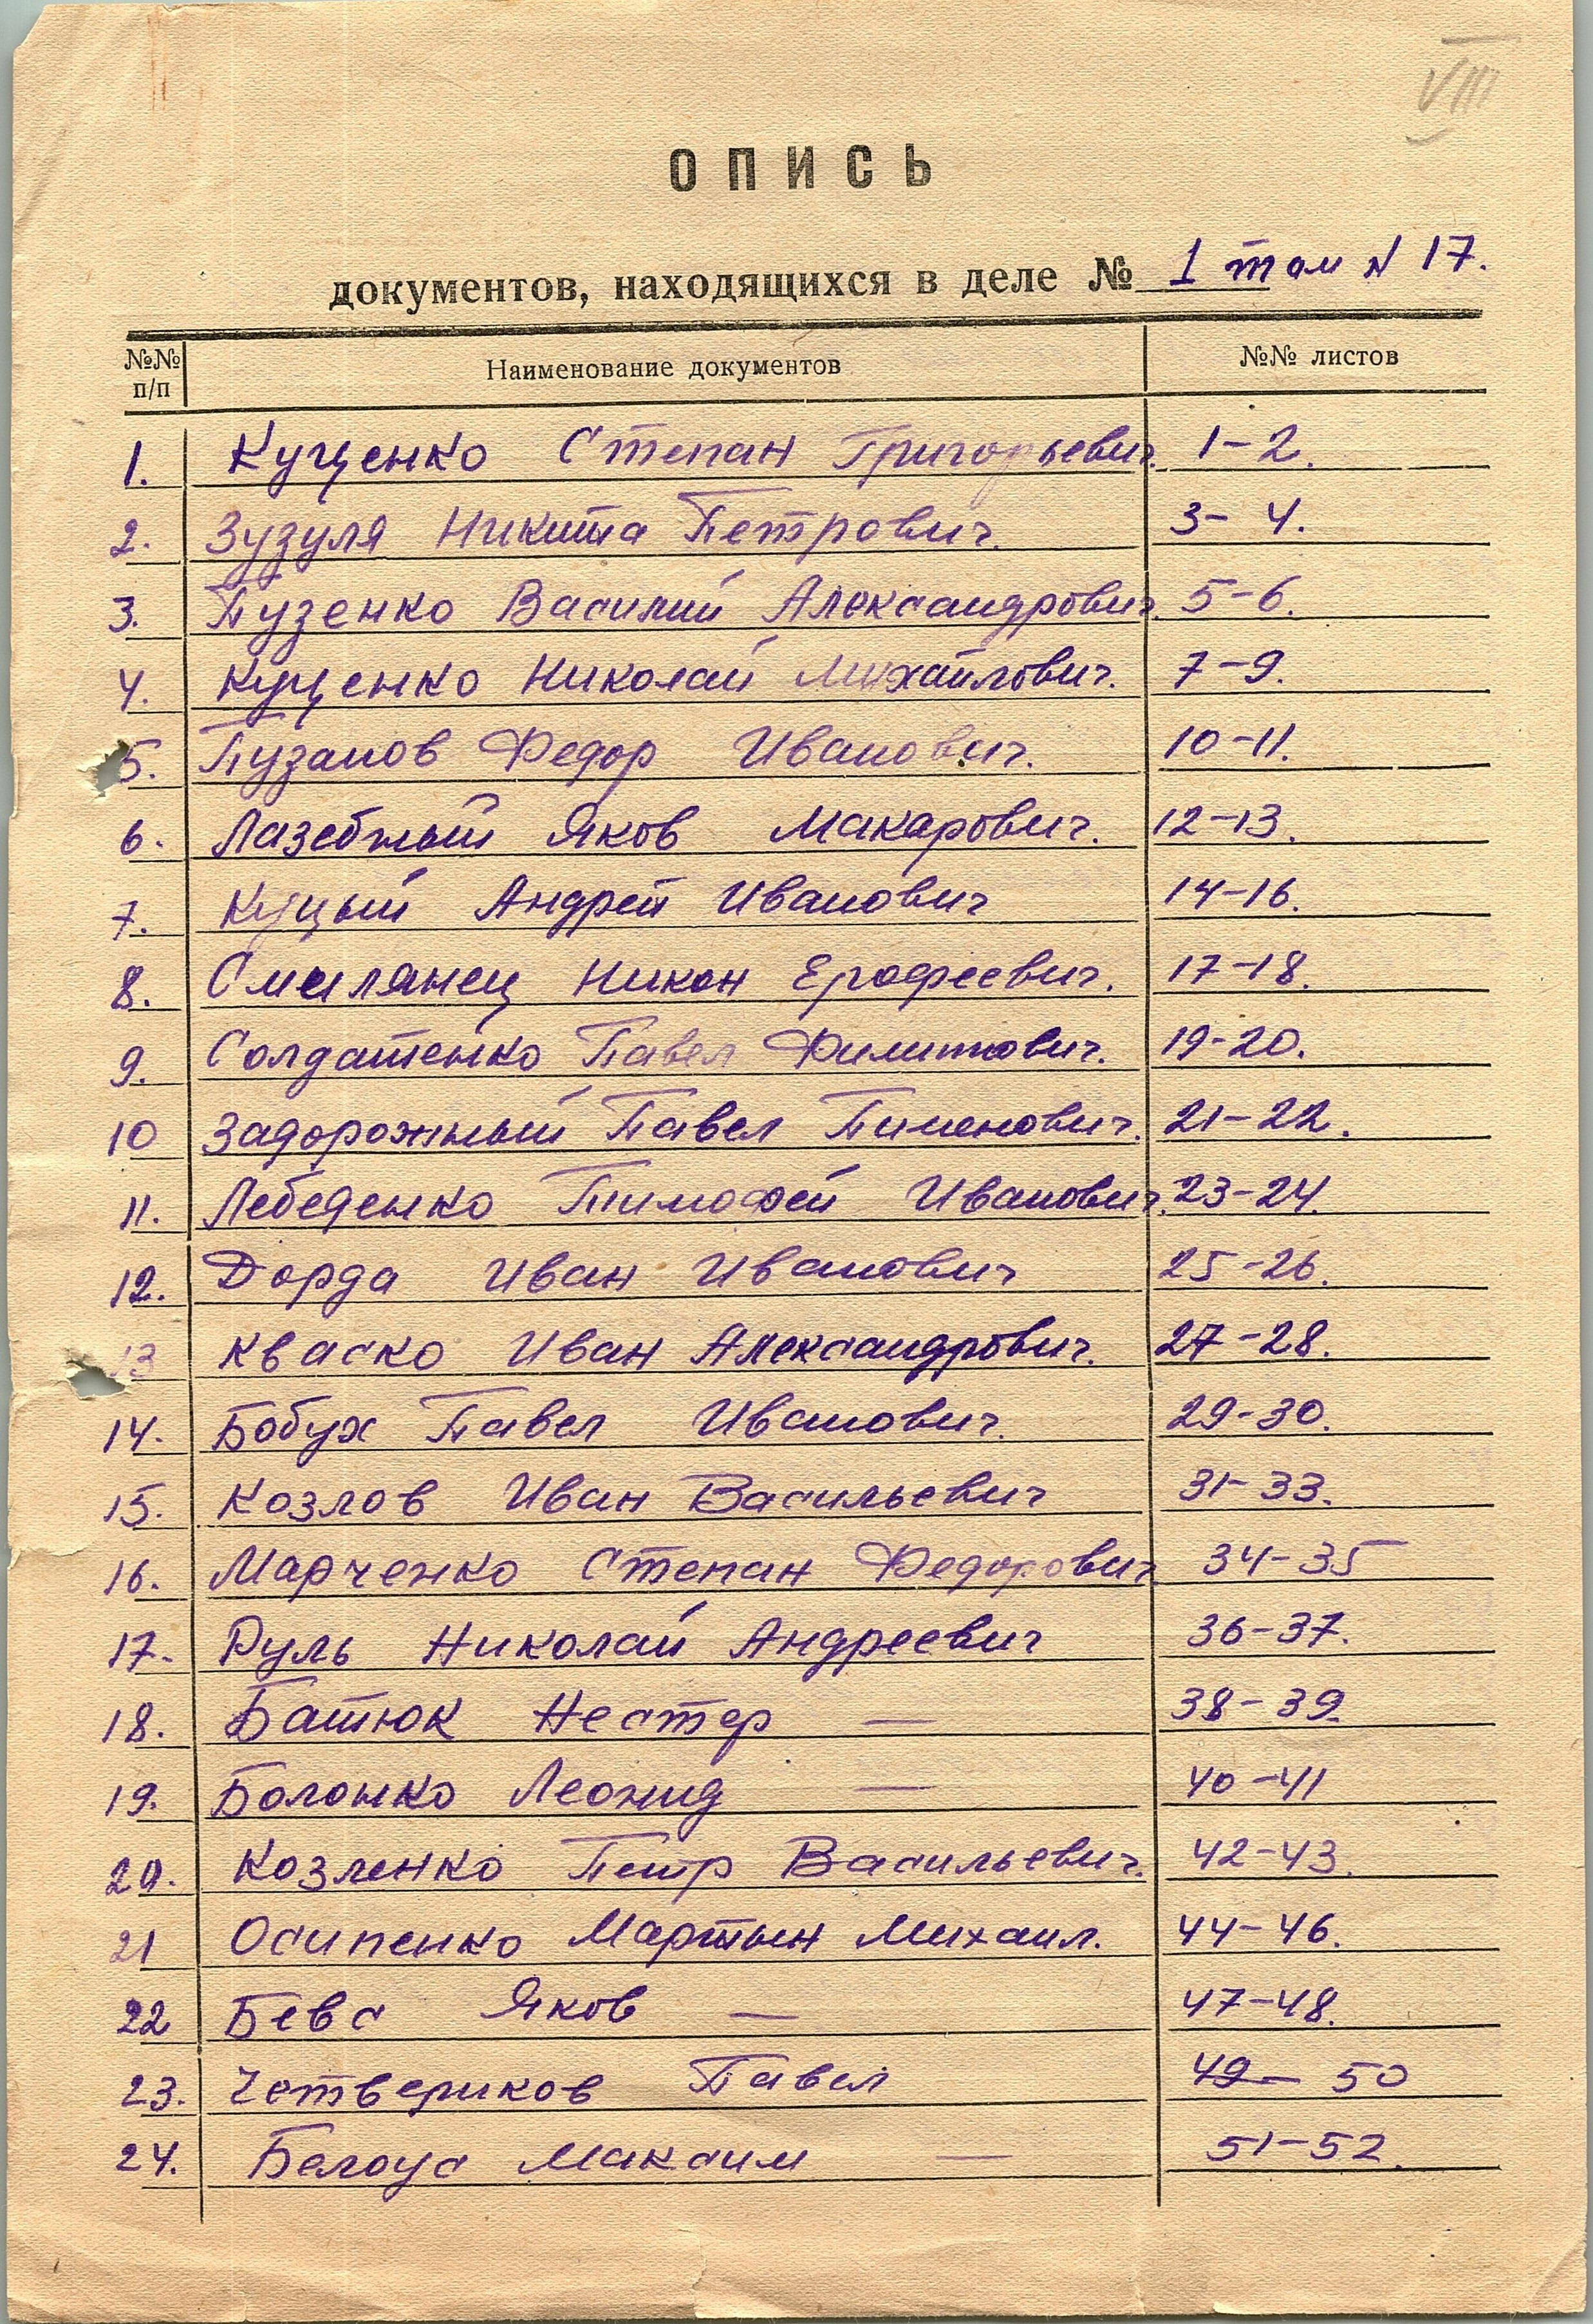 VIII
ОПИСЬ
документов, находящихся в деле № 1 том N 17.
№№ п/п Наименование документов №№ листов
1. Куценко Степан Григорьевич. 1-2.
2. Зузуля Никита Петрович. 3-4.
3. Пузенко Василий Александрович. 5-6.
4. Куценко Николай Михайлович. 7-9.
5. Пузанов Федор Иванович. 10-11.
6. Лазебный Яков Макарович. 12-13.
7. Куцый Андрей Иванович 14-16.
8. Смилянец Никон Ерофеевич. 17-18.
9. Солдатенко Павел Филиппович. 19-20.
10 Задорожный Павел Пименович. 21-22.
11. Лебеденко Тимофей Иванович. 23-24.
12. Дорда Иван Иванович 25-26.
13 Кваско Иван Александрович. 27-28.
14. Бобух Павел Иванович. 29-30.
15. Козлов Иван Васильевич 31-33.
16. Марченко Степан Федорович. 34-35
17. Руль Николай Андреевич 36-37.
18. Батюк Нестер — 38-39.
19. Болонко Леонид — 40-41
20. Козленко Петр Васильевич. 42-43.
21 Осипенко Мартын Михаил. 44-46.
22 Бевз Яков — 47-48.
23. Четвериков Павел 49-50
24. Белоус Максим — 51-52.